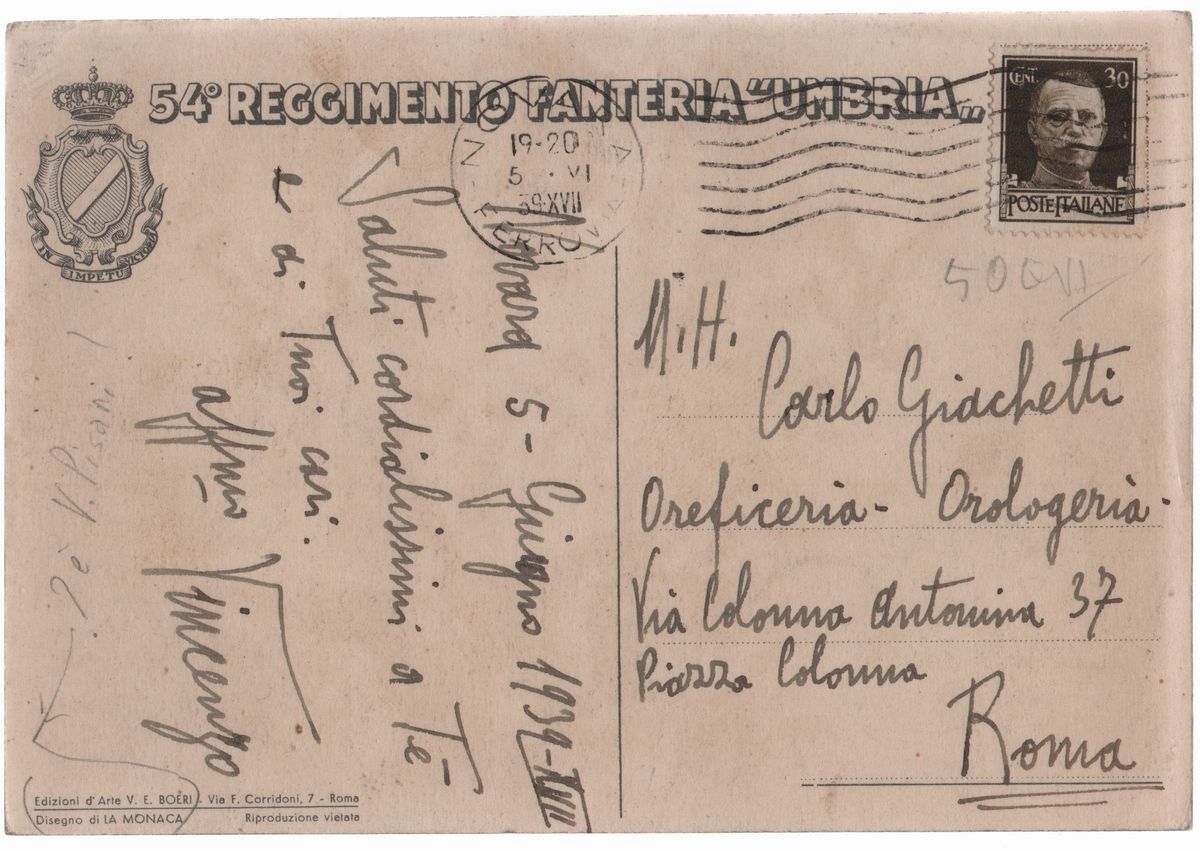 54° REGGIMENTO FANTERIA "UMBRIA"
IN IMPETU VICTORIA
NOVARA
19-20
5 · VI
39·XVII
FERROVIA
CENT. 30
POSTE ITALIANE
Novara 5 - Giugno 1939-XVII
Saluti cordialissimi a Te
e di Tuoi cari.
affmo
Vincenzo
? è V. Pisani
N.H.
Carlo Giachetti
Oreficeria - Orologeria -
Via Colonna Antonina 37
Piazza Colonna
Roma
Edizioni d'Arte V. E. BOERI - Via F. Corridoni, 7 - Roma
Disegno di LA MONACA Riproduzione vietata